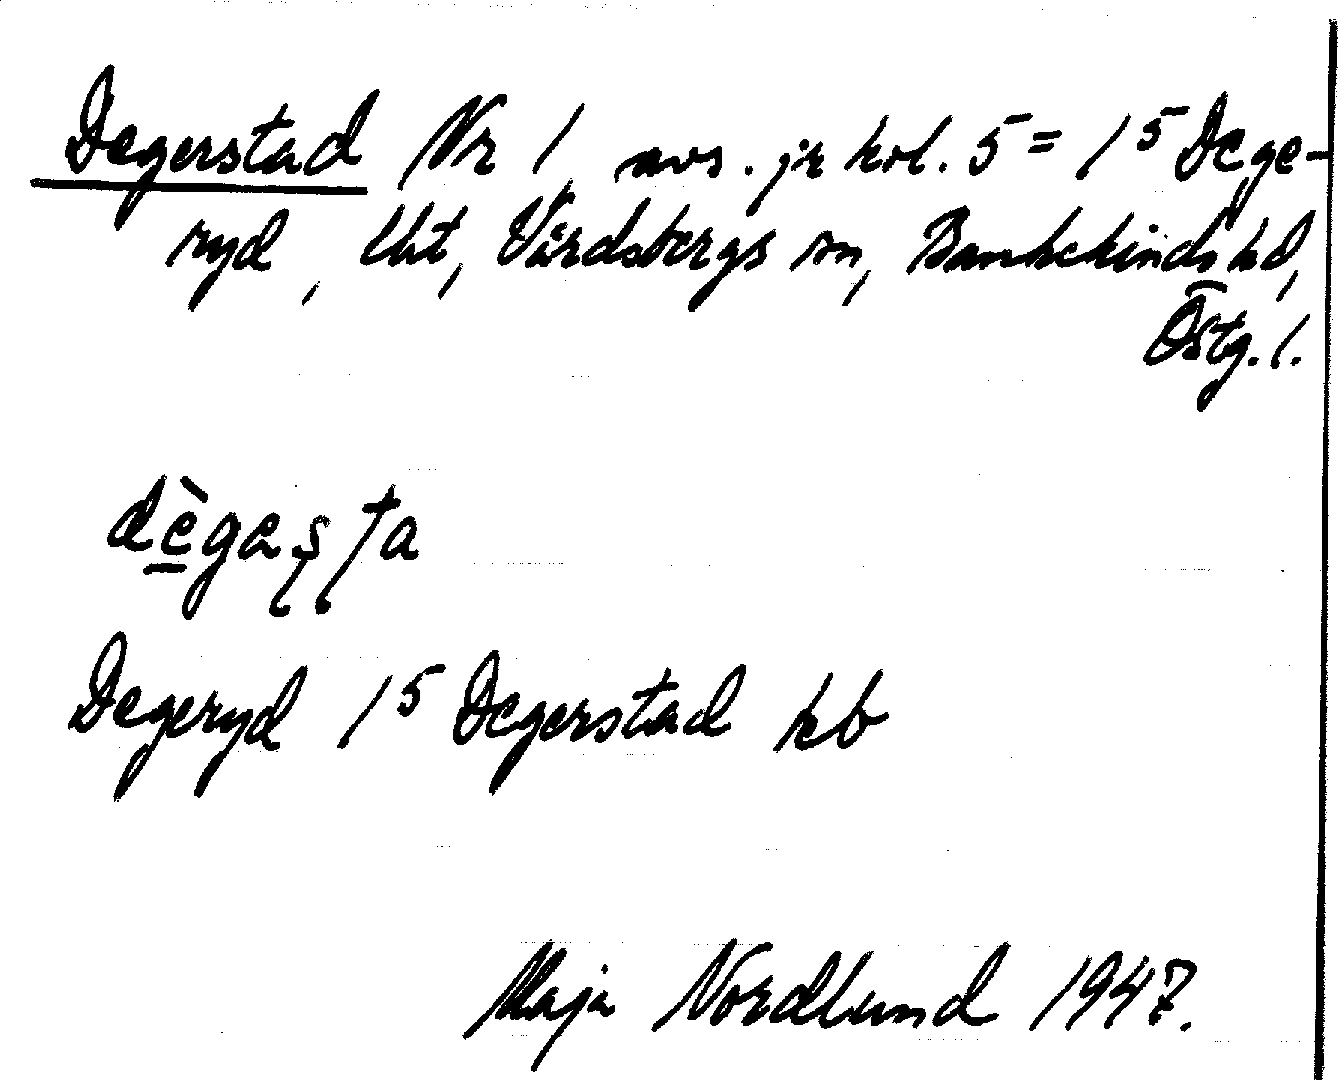 Degerstad Nr 1 avs. jr kol. 5 = 1⁵ Dege-
ryd, lht, Vårdsbergs sn, Bankekinds hd,
Östg. l.
dègaṣṭa
Degeryd 1⁵ Degerstad kb
Maja Nordlund 1947.